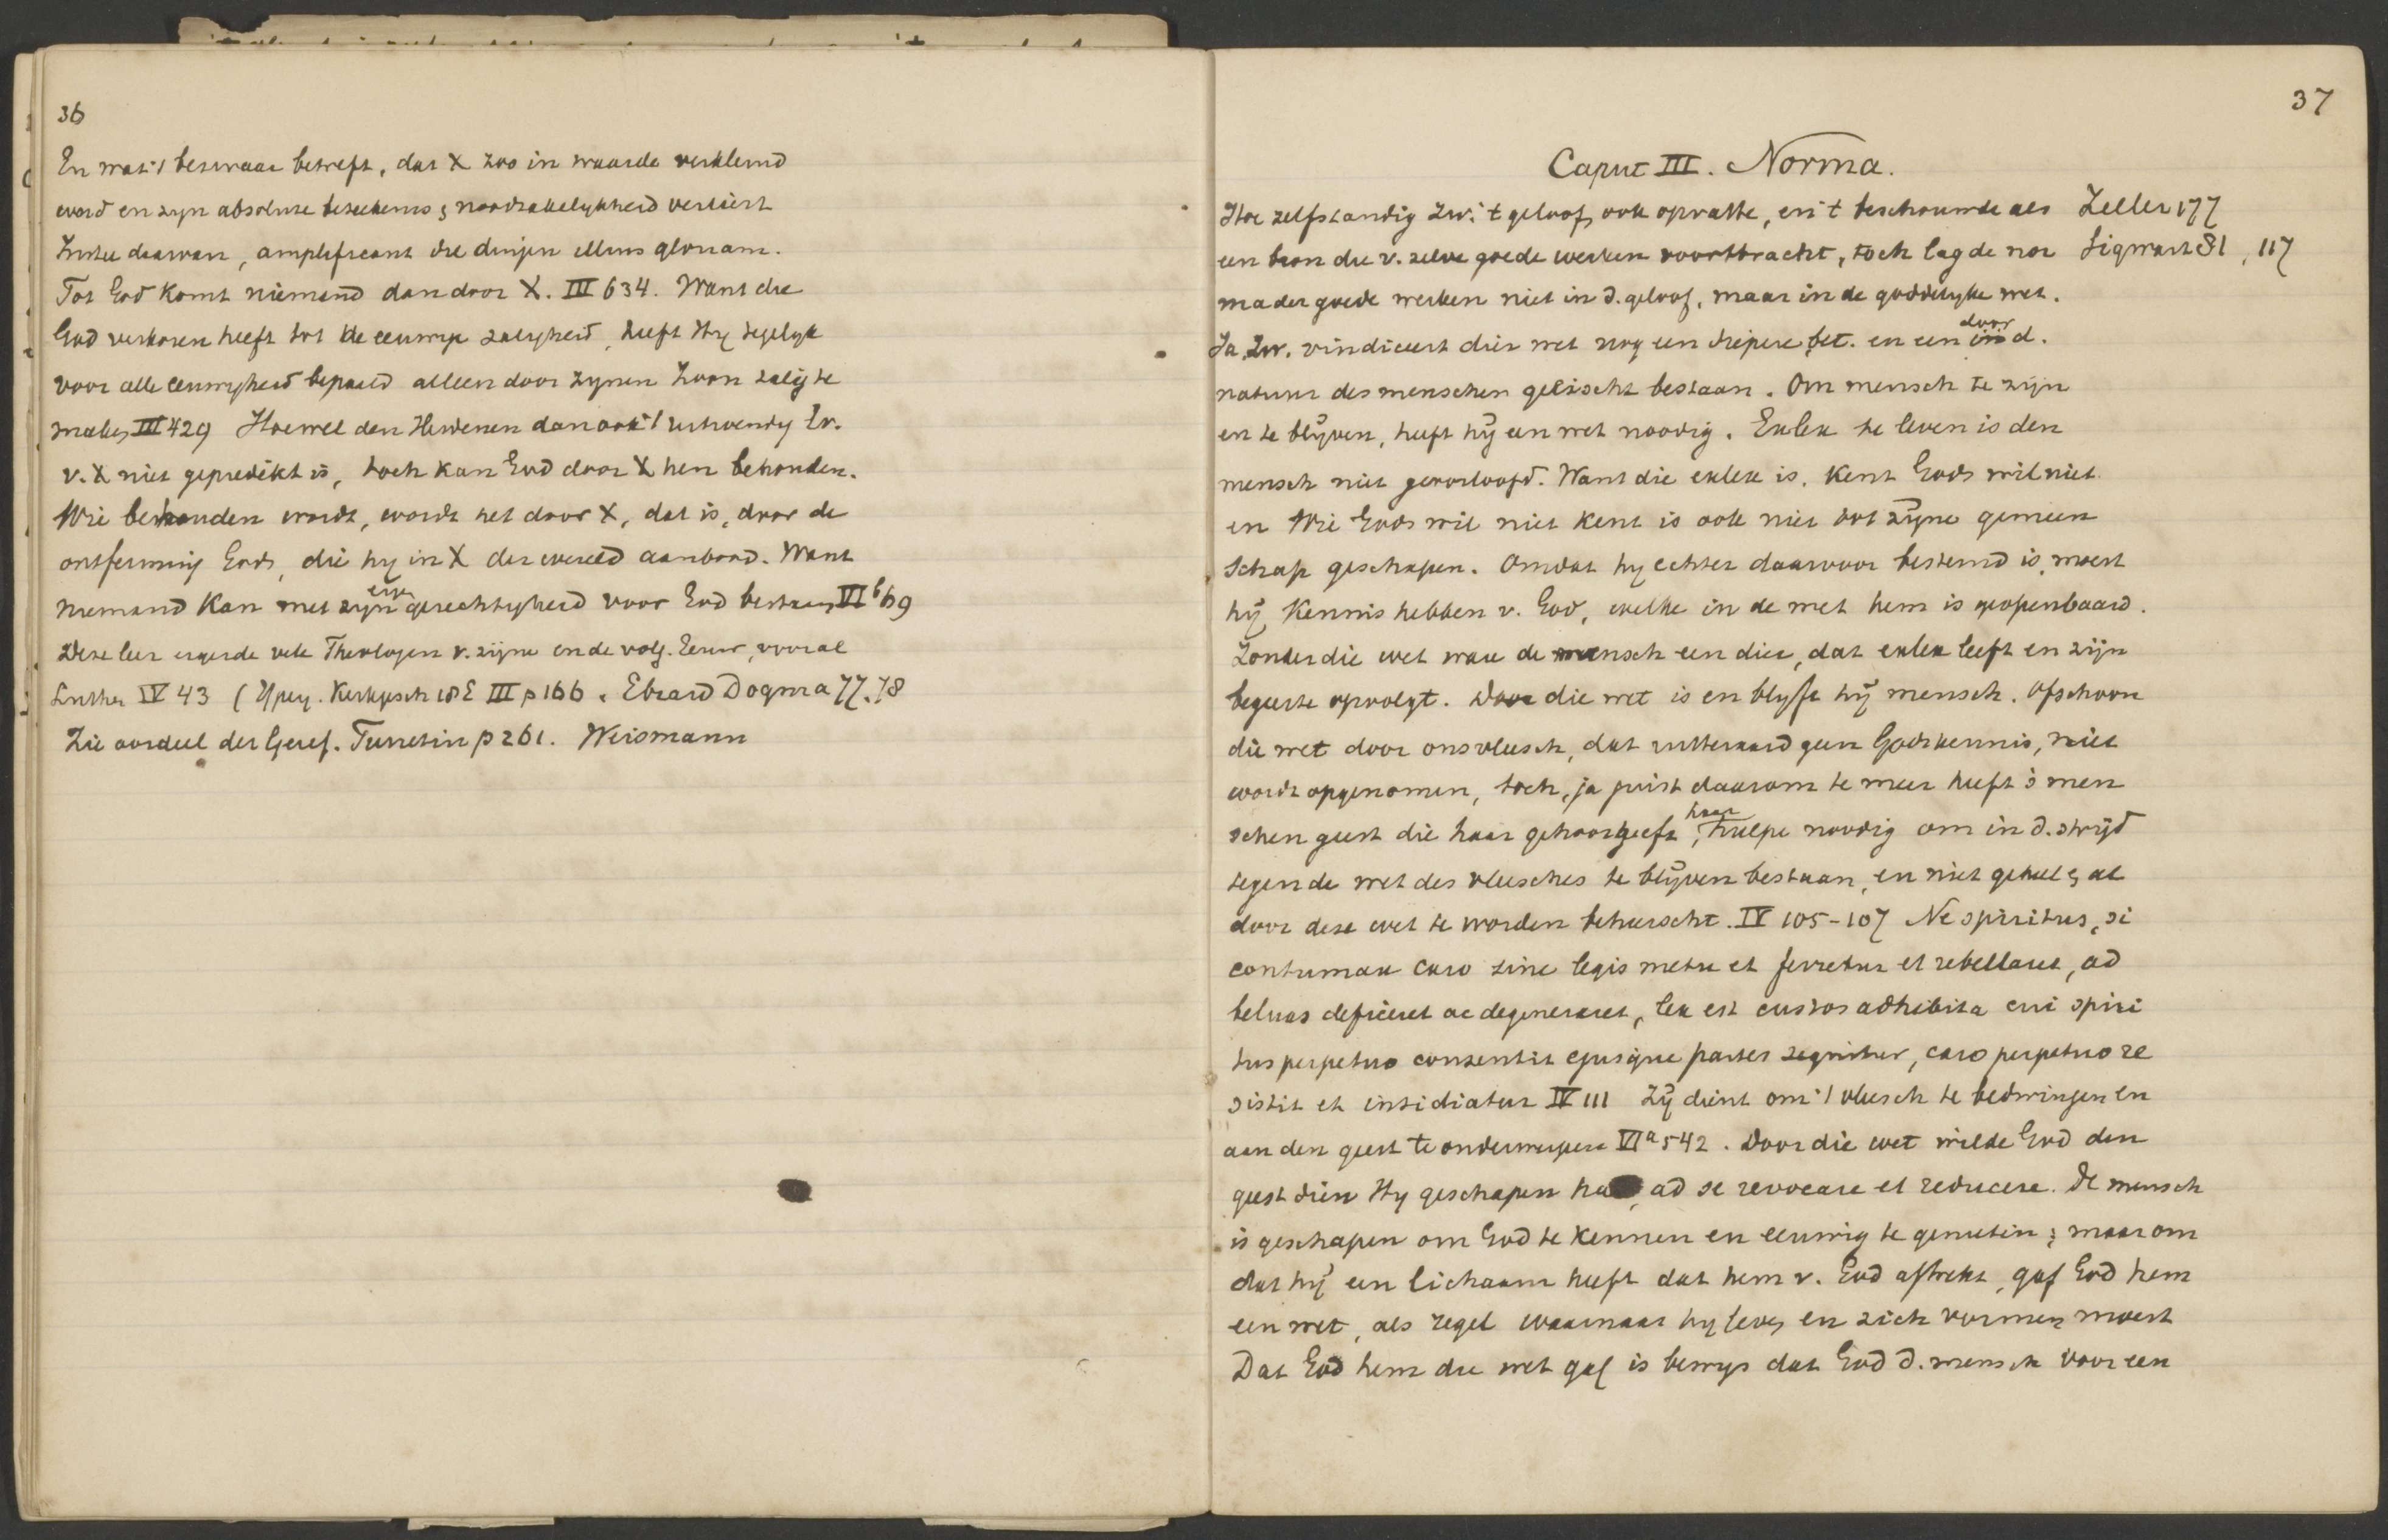 36
En wat 't bezwaar betreft, dat X zoo in waarde verkleind
word en zyn absolute beteekenis & noodzakelykheid verliest
Juste daarvan, amplificant die dingen illius gloriam.
Tot God komt niemand dan door X. III 634. Want die
God verkoren heeft tot de eeuwige zaligheid, heeft Hy tegelyk
voor alle eeuwigheid bepaald alleen door zynen Zoon zalig te
maken III 429 Hoewel den Heidenen dan ook 't uitwendig Ev.
v. X niet gepredikt is, toch kan God door X hen behouden.
Wie behouden wordt, wordt het door X, dat is, door de
ontferming Gods, die hy in X der wereld aanbood. Want
niemand kan met zyn eign gerechtigheid voor God bestaan VI b 69
Deze leer ergerde vele Theologen v. zijne en de volg. Eeuw, vooral
Luther IV 43 (Ypey. Kerkgesch 18 E III p 166. Ebrard Dogma 77.78
Zie oordeel der Geref. Turretin p 261. Weismann
37
Caput III. Norma.
Hoe zelfstandig Zw. 't geloof ook opvatte, en 't beschouwde als Zeller 177
een bron die v. zelve goede werken voortbracht, toch lag de nor Sigwart 81, 117
ma der goede werken niet in d. geloof, maar in de goddelyke wet.
Ja, Zw. vindiceert dier wet nog een diepere bet. en een door d.
natuur des menschen geëischt bestaan. Om mensch te zijn
en te blijven, heeft hij een wet noodig. Exlex te leven is den
mensch niet geoorloofd. Want die exlex is, kent Gods wil niet
en Wie Gods wil niet kent is ook niet tot zijne gemeen
schap geschapen. Omdat hy echter daarvoor bestemd is, moest
hij kennis hebben v. God, welke in de wet hem is geopenbaard.
Zonder die wet ware de mensch een dier, dat exlex leeft en zijn
begeerte opvolgt. Door die wet is en blyft hij mensch. Ofschoon
die wet door ons vleesch, dat uitteraard geen Godskennis, niet
wordt opgenomen, toch, ja juist daarom te meer heeft 's men
schen geest die haar gehoor geeft, haar hulpe noodig om in d. strijd
tegen de wet des vleesches te blijven bestaan, en niet geheel & al
door deze wet te worden beheerscht. IV 105-107 Ne spiritus, si
contumax caro sine legis metu et ferretur et rebellaret, ad
beluas deficeret ac degeneraret, lex est custos adhibita cui spiri
tus perpetuo consentit ejusque partes sequitur, caro perpetuo re
sistit et insidiatur IV 111 Zij dient om 't vleesch te bedwingen en
aan den geest te onderwerpen VI a 542. Door die wet wilde God den
geest dien Hy geschapen had, ad se revocare et reducere. De mensch
is geschapen om God te kennen en eeuwig te genieten; maar om
dat hij een lichaam heeft dat hem v. God aftrekt, gaf God hem
een wet, als regel waarnaar hy leven en zich vormen moest
Dat God hem die wet gaf is bewys dat God d. mensch voor een